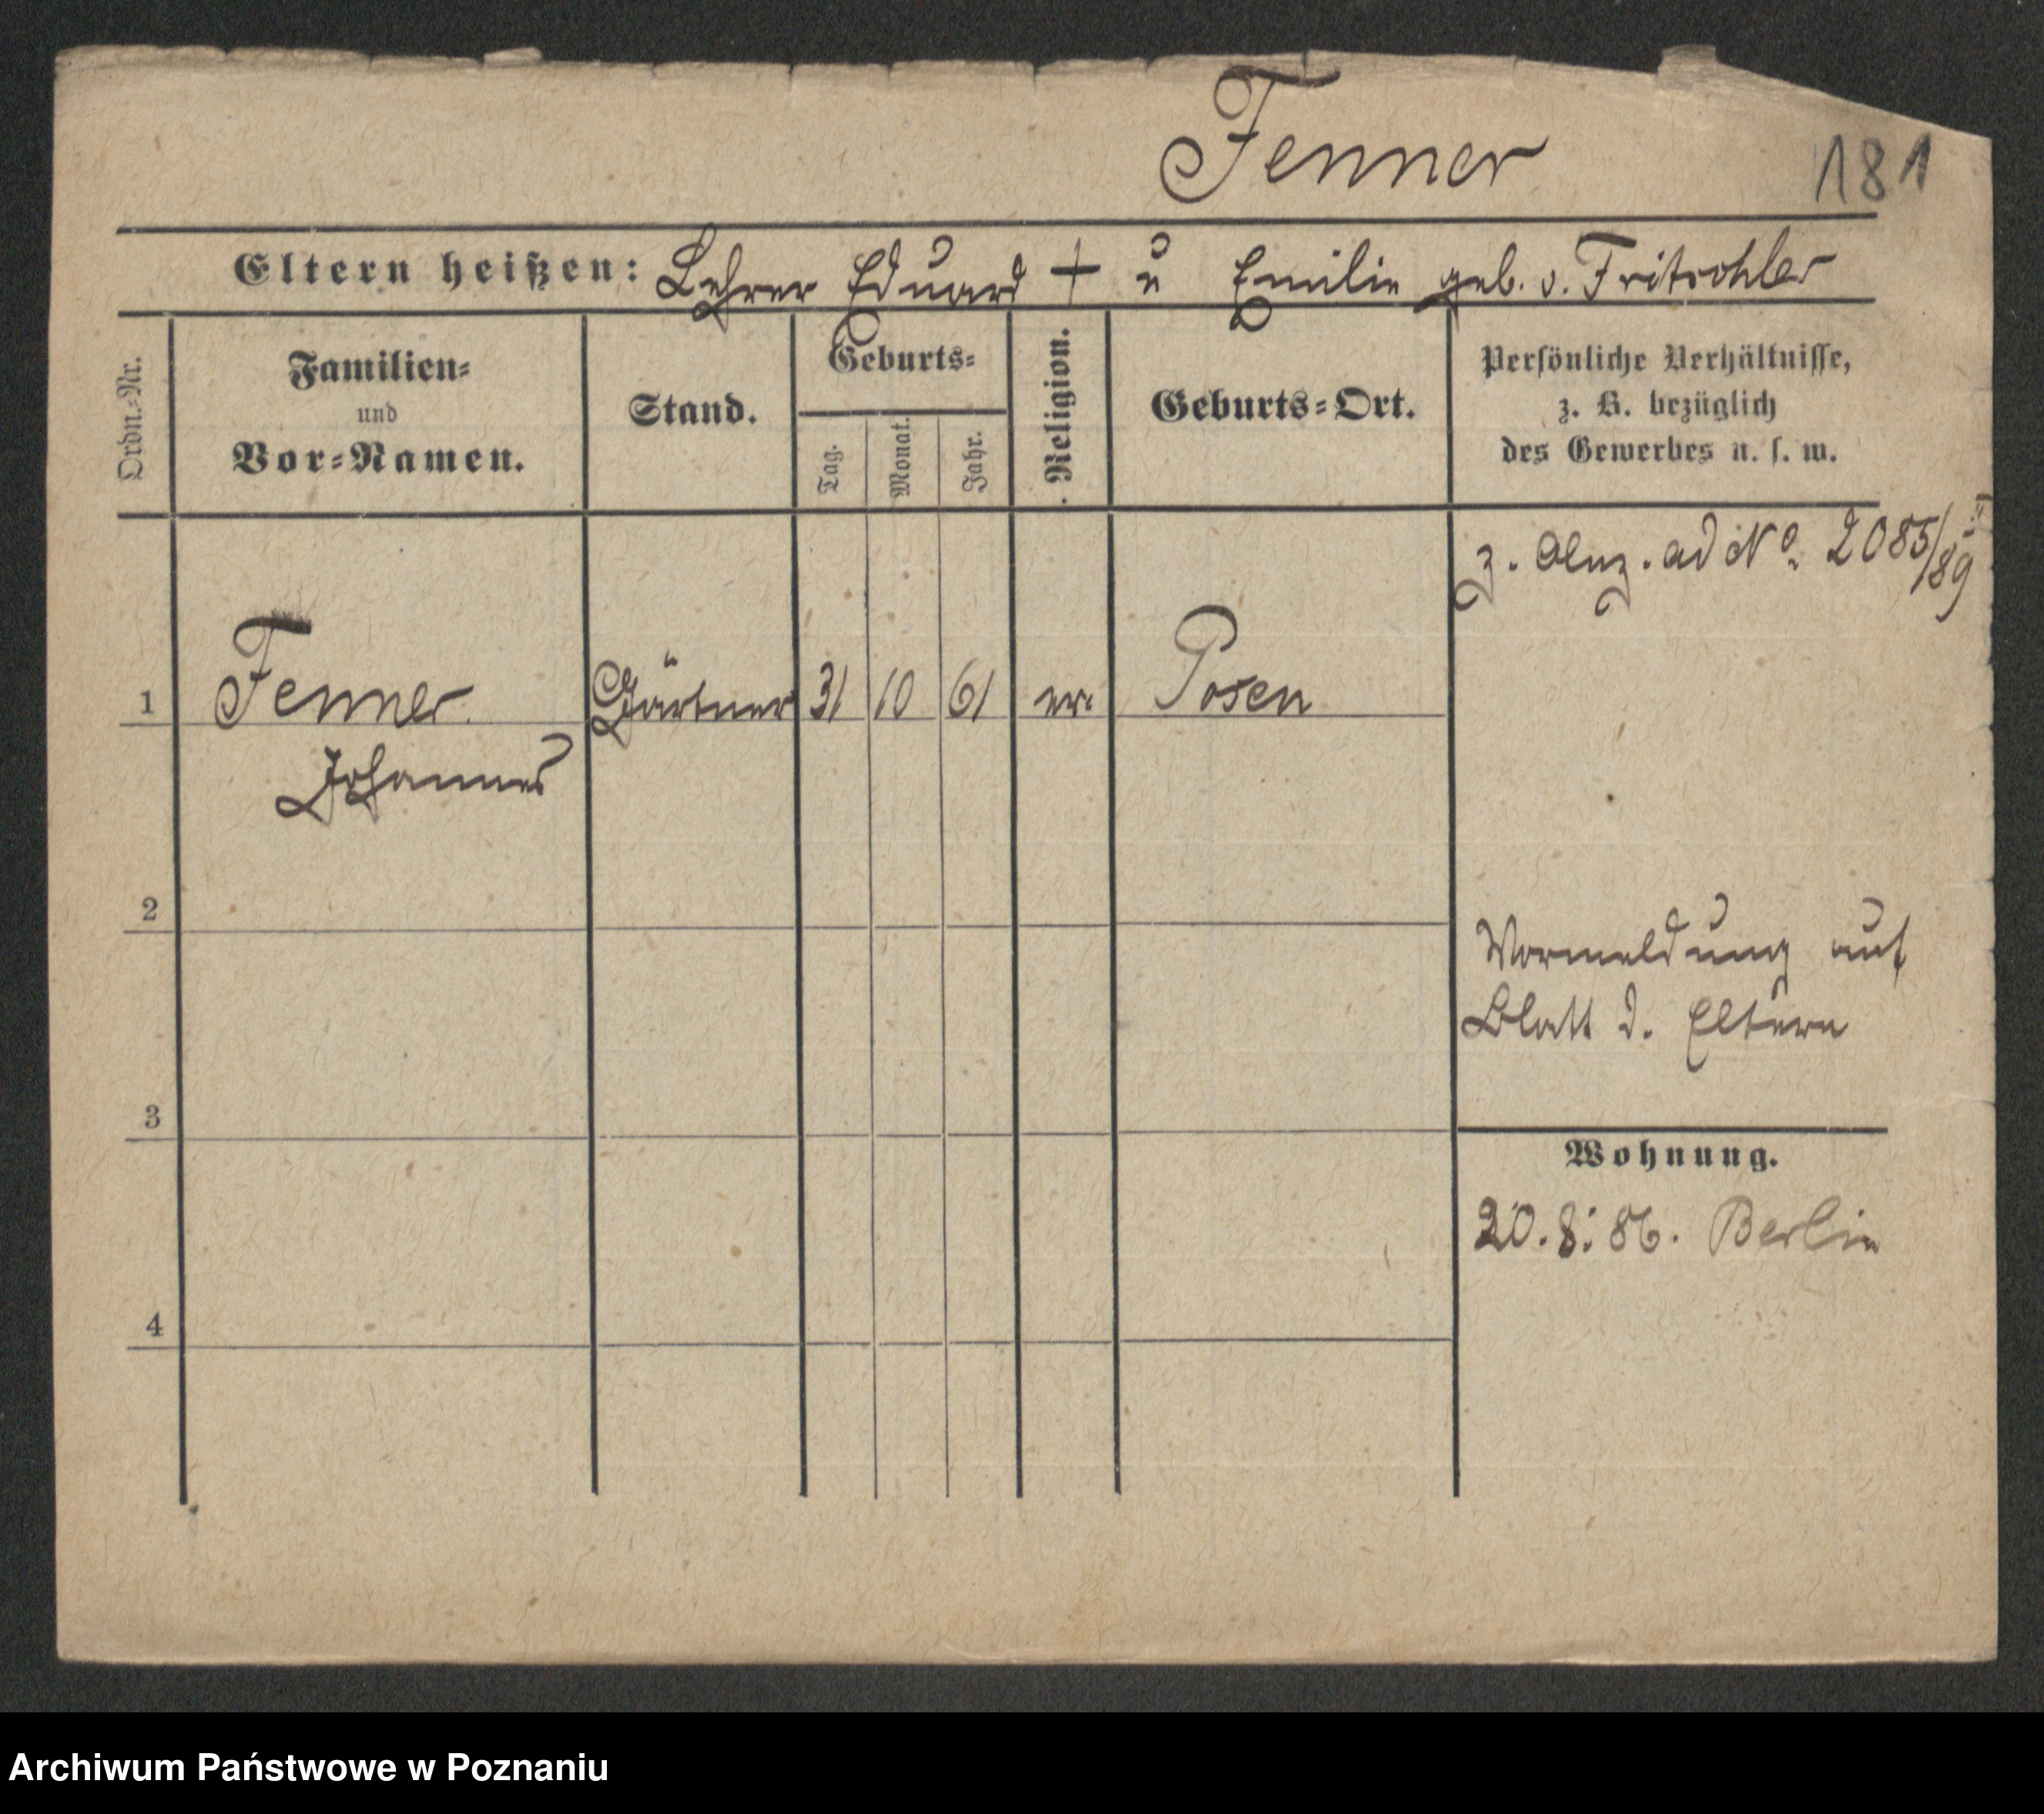 Fenner
181
Eltern heißen: Lehrer Eduard + u Emilie geb. v.
Ordn.-Nr.
Familien-
und
Vor-Namen.
Stand.
Geburts-
Tag.
Monat.
Jahr.
Religion.
Geburts-Ort.
Persönliche Verhältnisse,
z. B. bezüglich
des Gewerbes u. s. w.
z. Anz. ad No. 2085/89
1 Fenner Gärtner 31 10 61 ev. Posen
Johannes
2
Vormeldung auf
Blatt d. Eltern
3
Wohnung.
20. 8. 86. Berlin
4
Archiwum Państwowe w Poznaniu